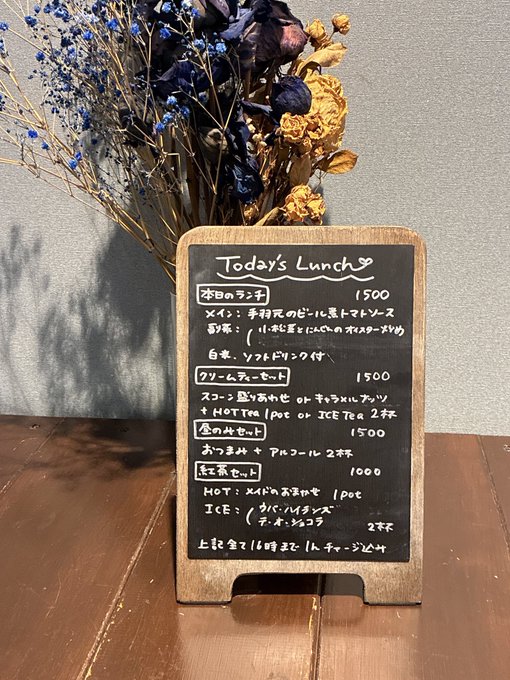 Today's Lunch♡
本日のランチ 1500
メイン: 手羽元のビール煮トマトソース
副菜: 小松菜とにんじんのオイスター炒め
白米、ソフトドリンク付
クリームティーセット 1500
スコーン盛りあわせ or キャラメルナッツ
+ HOT Tea 1pot or ICE Tea 2杯
昼のみセット 1500
おつまみ + アルコール 2杯
紅茶セット 1000
HOT: メイドのおまかせ 1pot
ICE: ウバ・ハイランズ
テ・オ・ショコラ
2杯
上記全て16時まで 1hチャージ込み